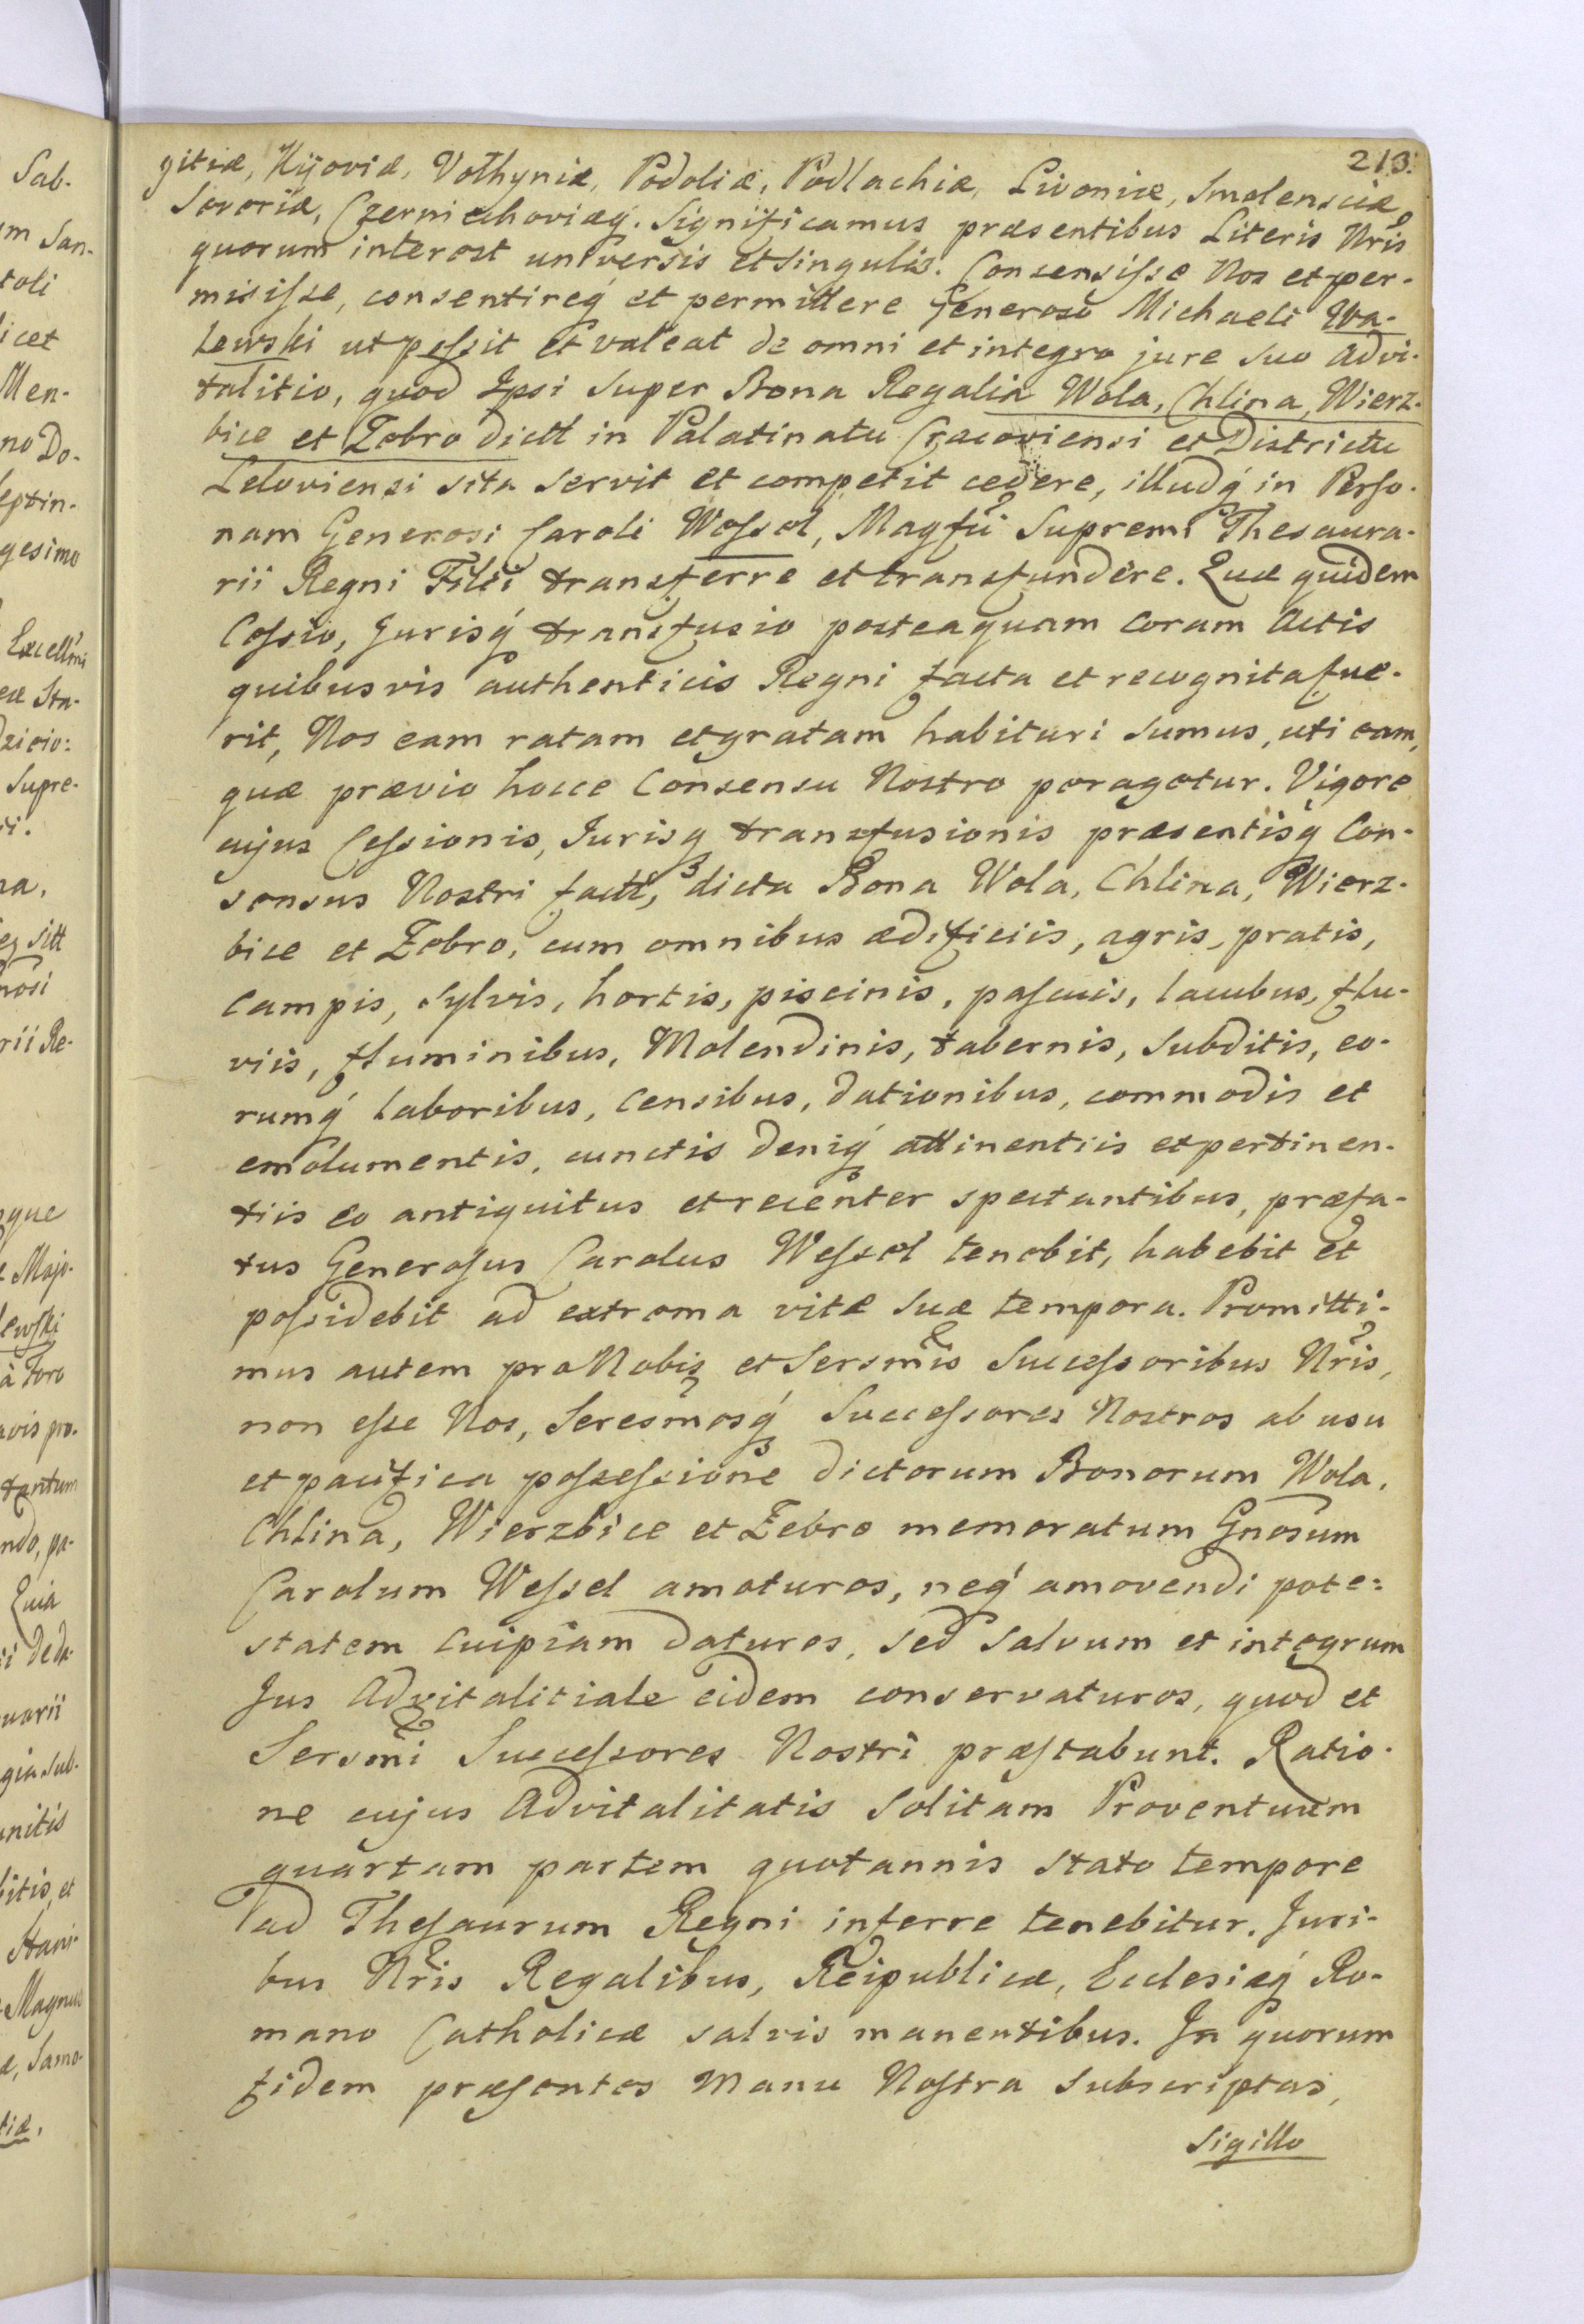 213.
gitiæ, Kijoviæ, Volhyniæ, Podoliæ, Podlachiæ, Livoniæ, Smolensciæ,
Severiæ, Czerniechoviæq́. Significamus præsentibus Literis Nris
quorum interest universis et singulis. Consensiſse Nos et per-
misiſse, consentireq́ et permittere Generoso Michaeli Wa-
lewski ut poſsit et valeat de omni et integro jure suo advi-
talitio, quod Ipsi super Bona Regalia Wola, Chlina, Wierz-
bice et Zebro dictt in Palatinatu Cracoviensi et Districtu
Leloviensi sita servit et competit cedere, illudq́ in Perſo-
nam Generosi Caroli Weſsel, Magfci Supremi Thesaura-
rii Regni Filii transferre et transfundere. Quæ quidem
Ceſsio, Jurisq́ transfusio posteaquam coram Actis
quibusvis authenticis Regni facta et recognita fue-
rit, Nos eam ratam et gratam habituri sumus, uti eam,
quæ prævio hocce Consensu Nostro peragetur. Vigore
cujus Ceſsionis, Jurisq transfusionis præsentisq Con-
sensus Nostri factt, dicta Bona Wola, Chlina, Wierz-
bice et Zebro, cum omnibus ædificiis, agris, pratis,
campis, sylvis, hortis, piscinis, paſcuis, lacubus, flu-
viis, fluminibus, Molendinis, tabernis, subditis, eo-
rumq́ laboribus, censibus, dationibus, commodis et
emolumentis, cunctis deniq́ attinentiis et pertinen-
tiis eo antiquitus et recenter spectantibus, præfa-
tus Generoſus Carolus Weſsel tenebit, habebit et
poſsidebit ad extrema vitæ suæ tempora. Promitti-
mus autem pro Nobis et Sersmis Succeſsoribus Nris,
non eſse Nos, Seresmosq́ Succeſsores Nostros ab usu
et pacifica poſseſsione dictorum Bonorum Wola,
Chlina, Wierzbice et Zebro memoratum Gnosum
Carolum Weſsel amoturos, neq́ amovendi pote-
statem cuipiam daturos, sed salvum et integrum
Jus Advitalitiale eidem conservaturos, quod et
Sersmi Succeſsores Nostri præſtabunt. Ratio-
ne cujus Advitalitatis solitam Proventuum
quartam partem quotannis stato tempore
ad Theſaurum Regni inferre tenebitur. Juri-
bus Nris Regalibus, Reipublicæ, Ecclesiæq́ Ro-
mano Catholicæ salvis manentibus. In quorum
fidem præſentes Manu Noſtra subscriptas,
Sigillo